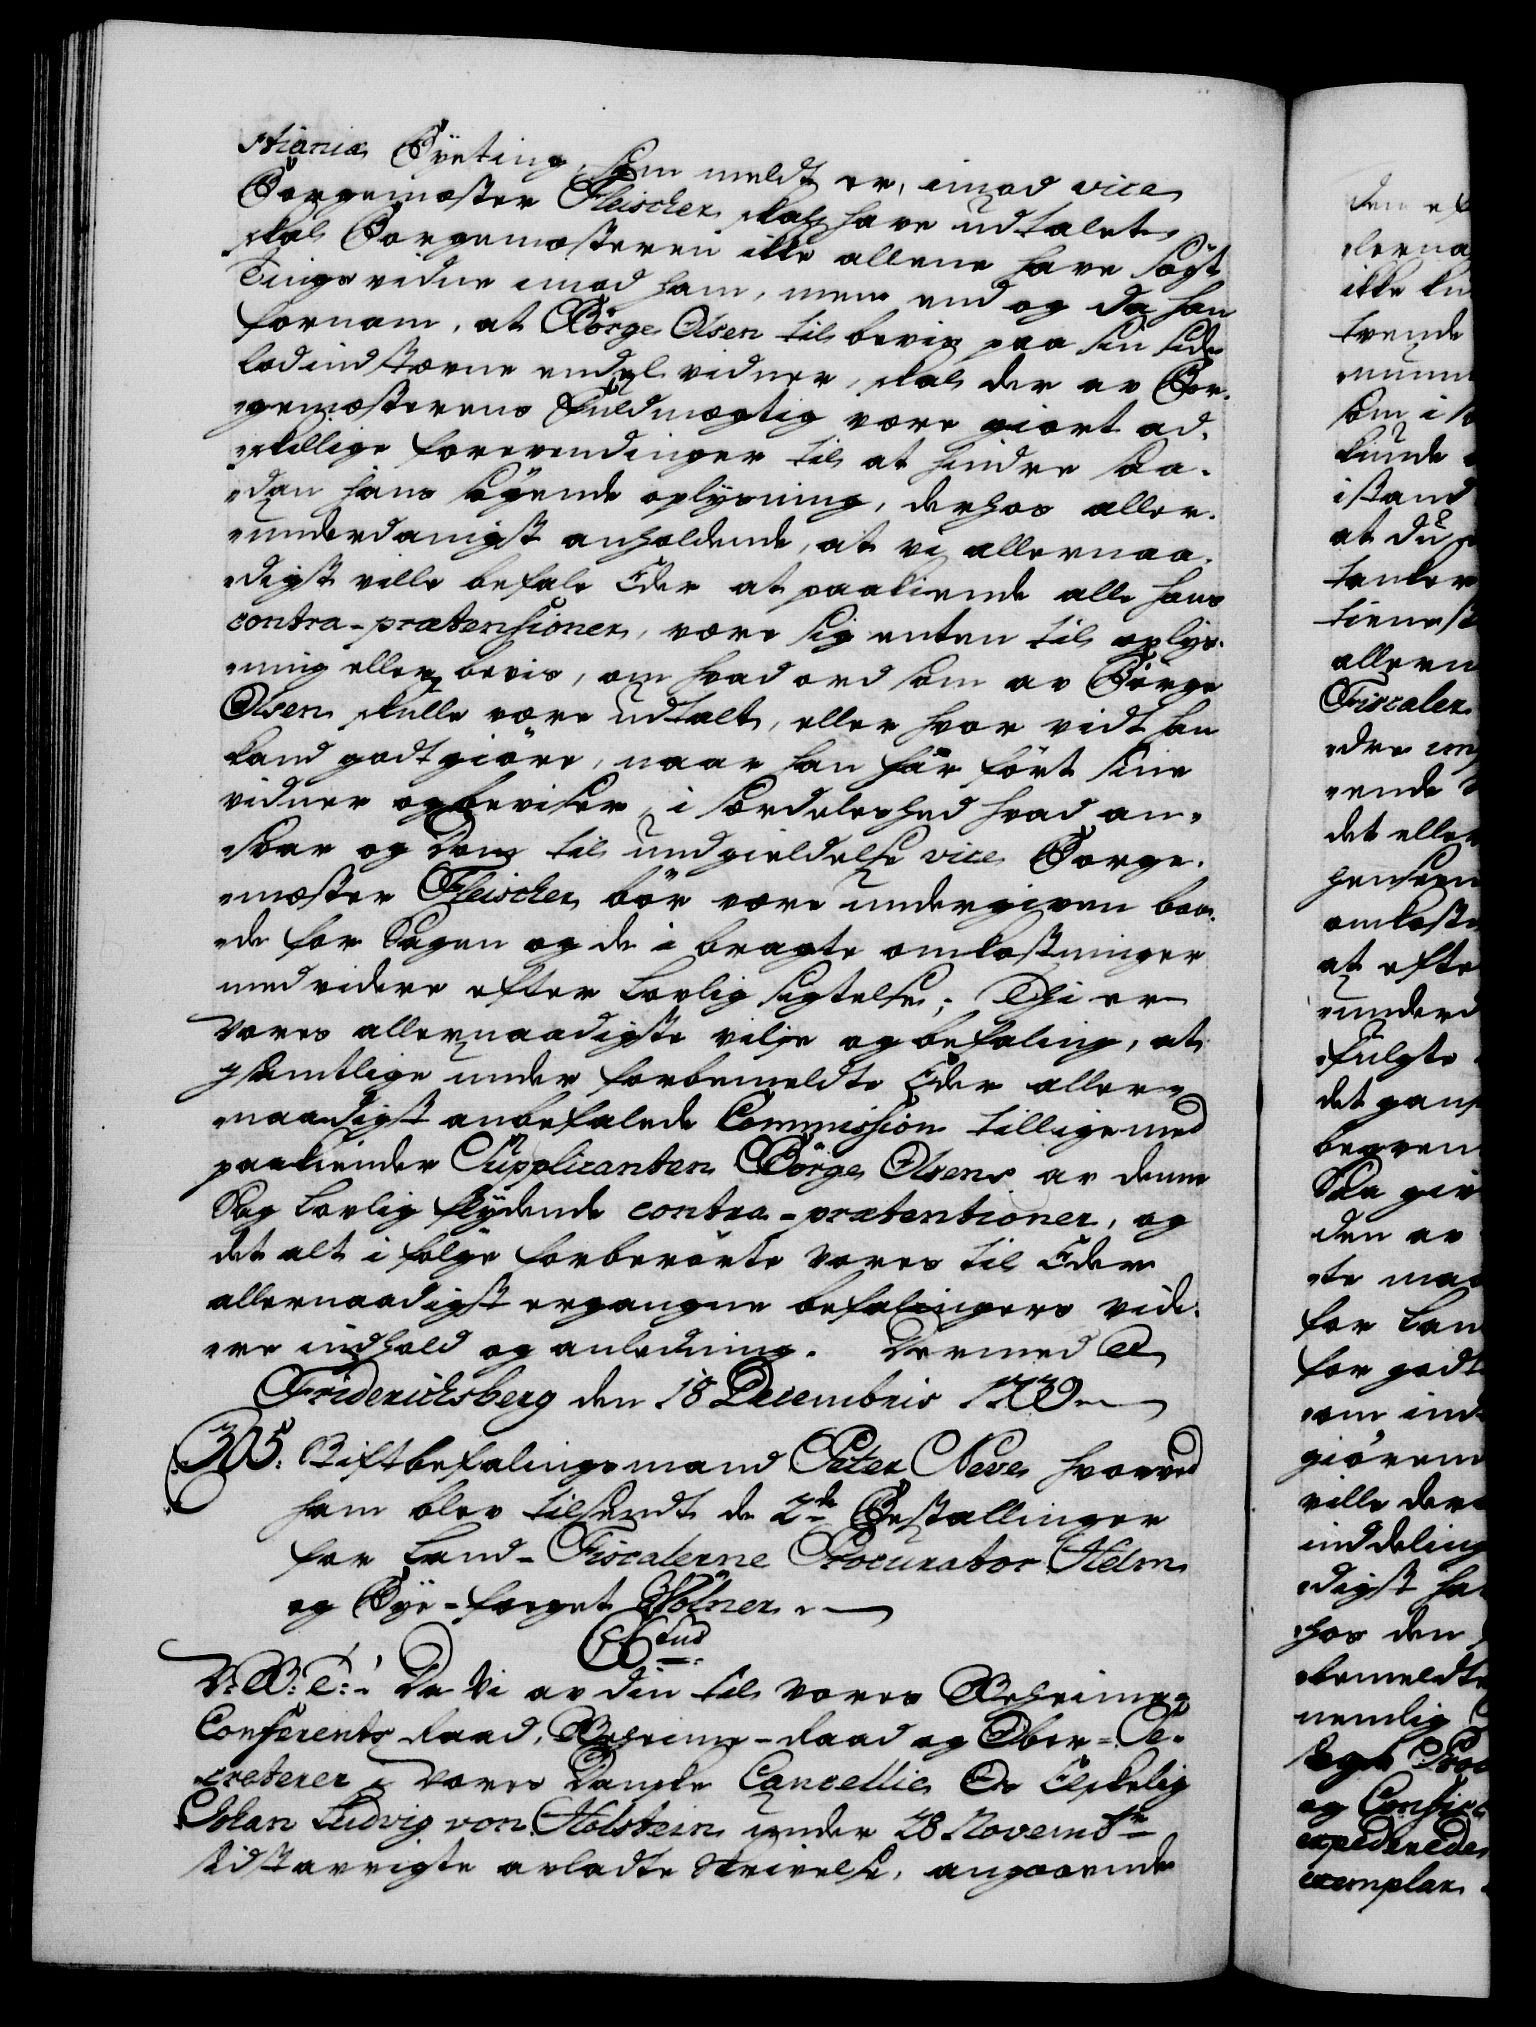 stiania Byeting, som meldt er, imod vice
Borgemester Fleischer skal have udtalet,
skal Borgemesteren ikke allene have søgt
Tings vidne imod ham, men end og da han
fornam, at Börge Olsen til beviis paa sin side
lod indstævne endeel vidner, skal der av Bor-
gemesterens Fuldmægtig være giort ad-
skillige forevendinger til at hindre saa-
dan hans søgende oplysning, derhos aller-
underdanigst anholdende, at vi allernaa-
digst ville befale Eder at paakiende alle hans
contra-prætensioner, være sig enten til oplys-
ning eller beviis, om hvad ord som av Börge
Olsen skulle være udtalt, eller hvor vidt han
kand godtgiøre, naar han får ført sine
vidner og beviser, i særdeleshed hvad an-
svar og Dom til undgieldelse vice Borge-
mester Fleischer bør være undergiven baa-
de for Sagen og de i bragte omkostninger
med videre efter Lovlig sigtelse; Thi er
Vores allernaadigste vilje og befaling, at
I samtlige under forbemeldte Eder aller-
naadigst anbefalede Commission tilligemed
paakiender Supplicanten Börge Olsens av denne
Sag Lovlig flydende contra-prætentioner, og
det alt i følge forberørte Vores til Eder
allernaadigst ergangne befalingers vide-
re indhold og anledning. Dermed etc
Friderichsberg den 18 Decembris 1739
305. Stiftbefalingsmand Peter Neve hvorved
ham blev tilsendt de 2de Bestallinger
for Land-Fiscalerne Procurator Helm
og Bye-foeget Wölner.
C6tus
V: B: T: Da Vi av din til Vores Geheime
Conferents Raad, Geheime-Raad og Ober-Se-
creterer i Vores Danske Cancellie Os Elskelig
Johan Ludvig von Holstein under 28 Novembr
sidstavvigte avladte Skrivelse, angaaende
den ef
lerna
ikke
tvende
som i
kunde
istand
at du
tanker
tienest
allern
Fiscaler
det eller
omkost
at efte
underd
fulgte
det gans
Saa giv
den av
te maa
for Lan
for godt
om ind
giørem
ville der
inddeling
digst ha
hos den
bemeldte
nemlig
og Consist
expederede
exemplar